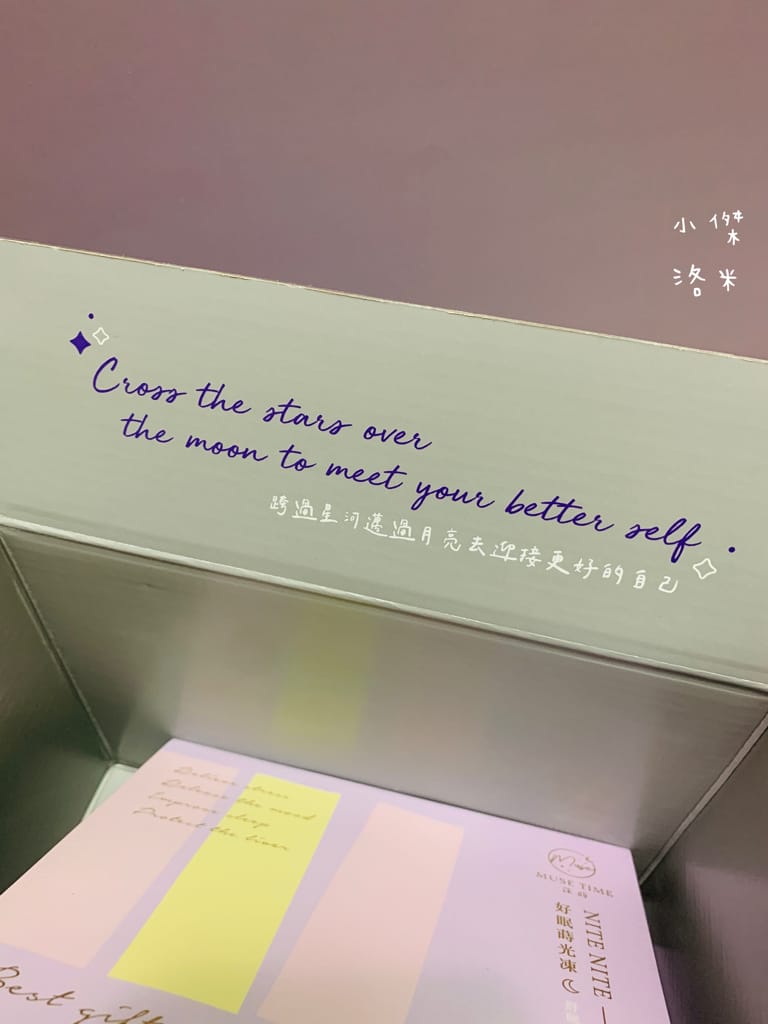 小傑
洛米
Cross the stars over
the moon to meet your better self.
跨過星河邁過月亮去迎接更好的自己
Relieve stress
Relieve the mood
Improve sleep
Protect the liver
Muse
MUSE TIME
NITE NITE
好眠蒔光凍
Best gift